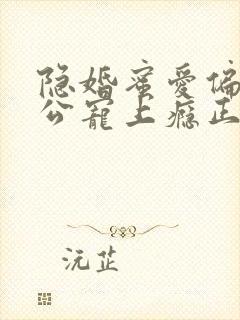 隐婚蜜爱偏
公宠上瘾正
沅芷